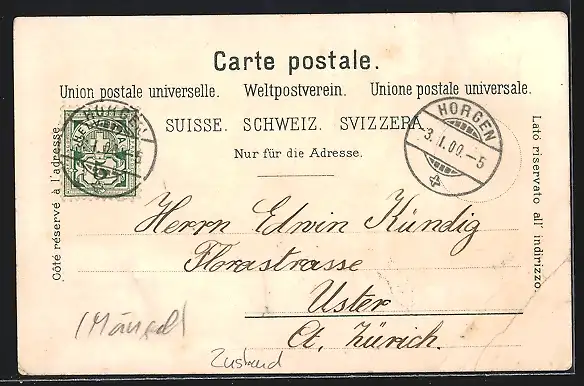 Carte postale.
Union postale universelle. Weltpostverein. Unione postale universale.
SUISSE. SCHWEIZ. SVIZZERA.
Nur für die Adresse.
Côté réservé à l'adresse.
Lato riservato all' indirizzo.
HORGEN
HELVETIA
5
HORGEN
3. I. 00. – 5
Herrn Edwin Kündig
Florastrasse
Uster
Ct. Zürich.
(Mängel)
Zustand